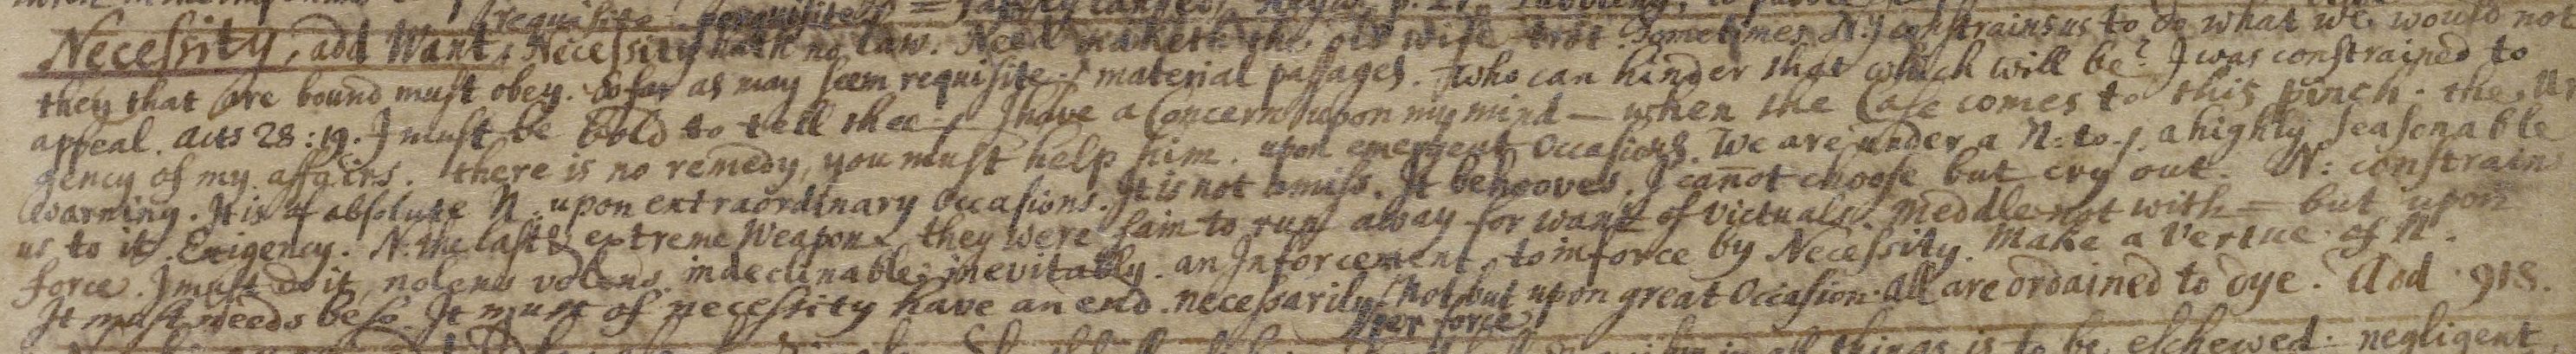 requisite. perquisite
Necessity, add Want, Necessity hath no law. Need maketh the old wife trot. Sometimes N:y constrains us to do what we would not
they that are bound must obey. So far as may seem requisite. material passages. who can hinder that which will be? I was constrained to
appeal. Acts 28:19. I must be bold to tell thee. I have a Concern upon my mind — when the Case comes to this pinch. the Ur
gency of my affairs. there is no remedy, you must help him. upon emergent Occasions. We are under a N: to. a highly seasonable
warning. It is of absolute N. upon extraordinary Occasions. It is not amiss. It behooves. I canot choose but cry out. N: constrains
us to it. Exigency. N. the last & extreme Weapon. they were fain to run away for want of victuals. Meddle not with = but upon
force. I must do it, nolens volens. indeclinable, inevitably. an Inforcement, to inforce by Necessity. Make a Vertue of N.
It must needs be so. It must of necessity have an end. necessarily. Not but upon great Occasion. All are ordained to dye. Add 918.
per force
all things is to be eschewed. negligent